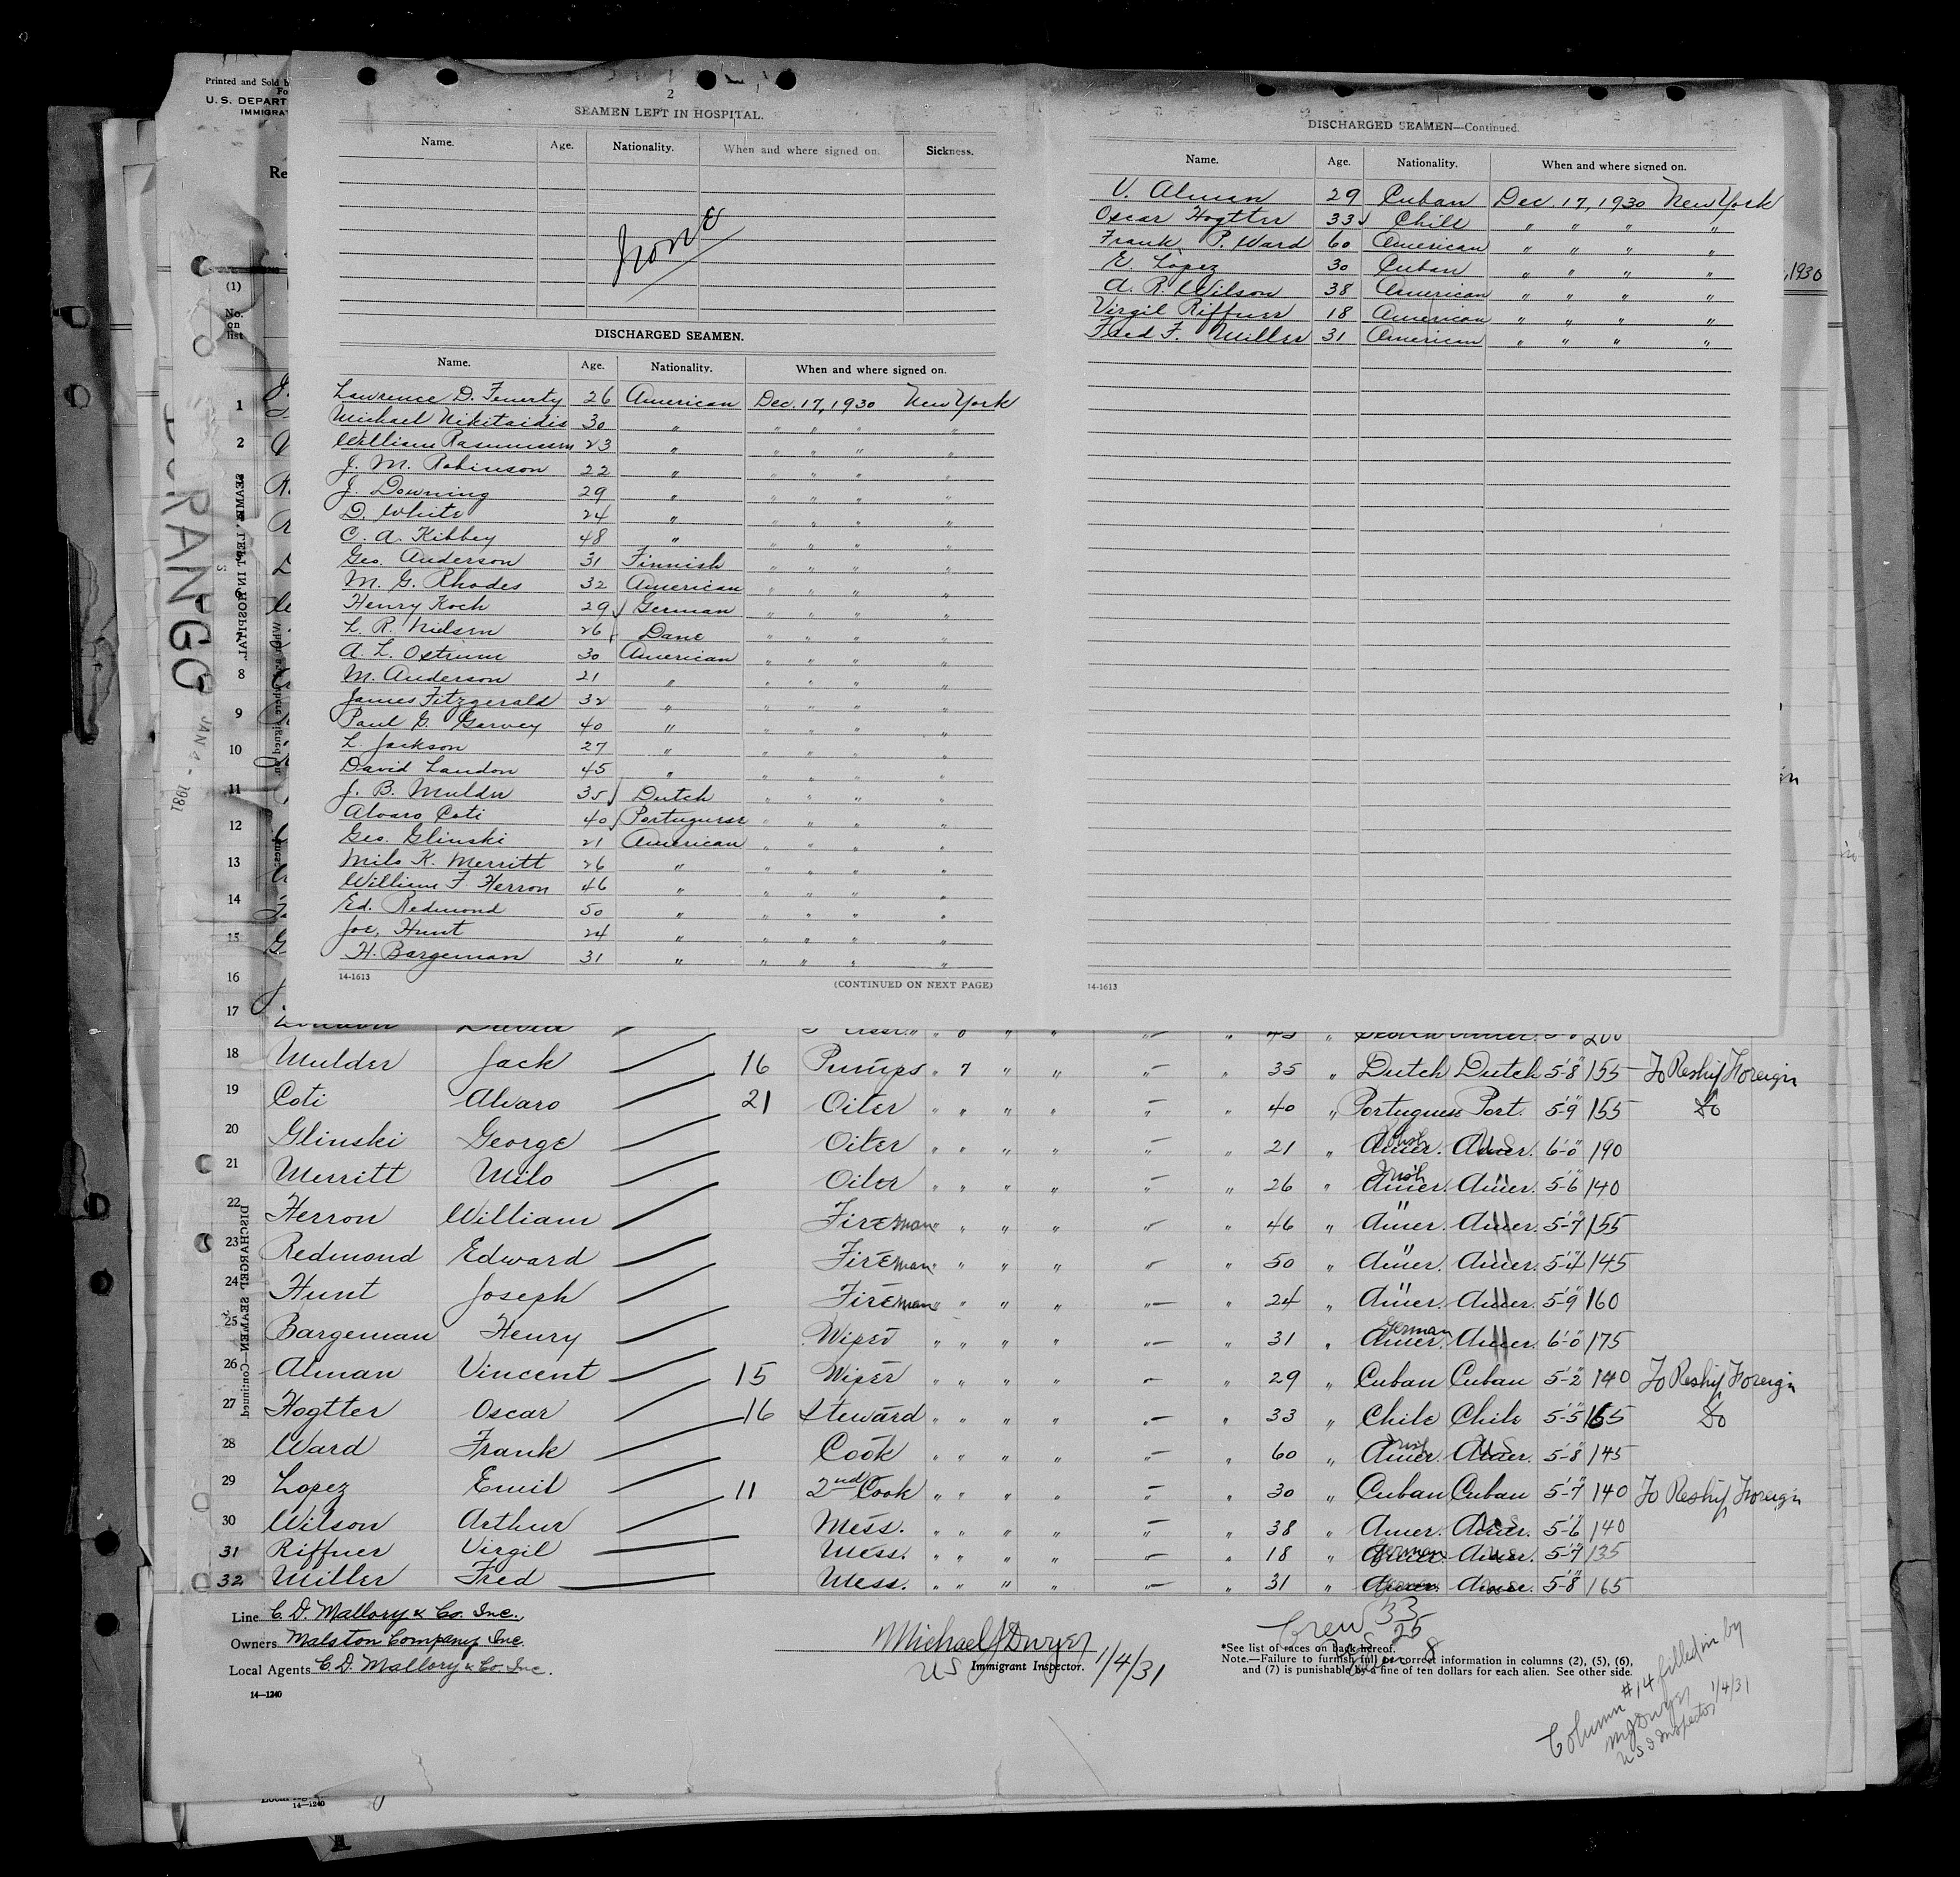 Printed and Sold b
Fo
U. S. DEPART
IMMIGRA
Re
(1)
No.
on
list
DURANGO
JAN 4 - 1931
2
SEAMEN LEFT IN HOSPITAL.
Name. Age. Nationality. When and where signed on. Sickness.
None
DISCHARGED SEAMEN.
Name. Age. Nationality. When and where signed on.
Lawrence D. Fenerty 26 American Dec. 17, 1930 New York
Michael Nikitaidis 30 " " " " "
William Rasmussen 23 " " " " "
J. M. Robinson 22 " " " " "
J. Downing 29 " " " " "
D. White 24 " " " " "
C. A. Kibbey 48 " " " " "
Geo. Anderson 31 Finnish " " " "
M. G. Rhodes 32 American " " " "
Henry Koch 29 German " " " "
L. R. Nielsen 26 Dane " " " "
A. L. Ostrum 30 American " " " "
M. Anderson 21 " " " " "
James Fitzgerald 32 " " " " "
Paul G. Garvey 40 " " " " "
L. Jackson 27 " " " " "
David Landon 45 " " " " "
J. B. Mulder 35 Dutch " " " "
Alvaro Coti 40 Portuguese " " " "
Geo. Glinski 21 American " " " "
Milo K. Merritt 26 " " " " "
William F. Herron 46 " " " " "
Ed. Redmond 50 " " " " "
Joe, Hunt 24 " " " " "
H. Bargeman 31 " " " " "
14-1613
(CONTINUED ON NEXT PAGE)
DISCHARGED SEAMEN—Continued.
Name. Age. Nationality. When and where signed on.
V. Alman 29 Cuban Dec. 17, 1930 New York
Oscar Hogtter 33 Chile " " " "
Frank P. Ward 60 American " " " "
E. Lopez 30 Cuban " " " "
A. R. Wilson 38 American " " " "
Virgil Riffner 18 American " " " "
Fred F. Miller 31 American " " " "
14-1613
, 1930
1
2
8
9
10
11
12
13
14
15
16
17
SEAMEN LEFT IN HOSPITAL.
DISCHARGED SEAMEN—Continued
18 Mulder Jack 16 Pumps " 7 " " " " 35 " Dutch Dutch 5-8 155 To Reship Foreign
19 Coti Alvaro 21 Oiler " " " " " " 40 " Portuguese Port. 5-9 155 Do
20 Glinski George Oiler " " " " " " 21 " Amer. Amer. US 6-0 190
21 Merritt Milo Oiler " " " " " " 26 " Irish Amer. Amer. " 5-6 140
22 Herron William Fireman " " " " " " 46 " Amer. " Amer. " 5-7 155
23 Redmond Edward Fireman " " " " " " 50 " Amer. " Amer. " 5-4 145
24 Hunt Joseph Fireman " " " " " " 24 " Amer. " Amer. " 5-9 160
25 Bargeman Henry Wiper " " " " " " 31 " German Amer. Amer. " 6-0 175
26 Alman Vincent 15 Wiper " " " " " " 29 " Cuban Cuban 5-2 140 To Reship Foreign
27 Hogtter Oscar 16 Steward " " " " " " 33 " Chile Chile 5-5 165 Do
28 Ward Frank Cook " " " " " " 60 " Irish Amer. Amer. US 5-8 145
29 Lopez Emil 11 2nd Cook " " " " " " 30 " Cuban Cuban 5-7 140 To Reship Foreign
30 Wilson Arthur Mess. " " " " " " 38 " Amer. Amer. US 5-6 140
31 Riffner Virgil Mess. " " " " " " 18 " German Amer. Amer. US 5-7 135
32 Miller Fred Mess. " " " " " " 31 " German Amer. Amer. US 5-8 165
Line C. D. Mallory & Co. Inc.
Owners Malston Company Inc.
Local Agents C. D. Mallory & Co. Inc.
14—1240
Michael J Dwyer
US Immigrant Inspector. 1/4/31
Crew 33
US 25
Alien 8
*See list of races on back hereof.
Note.—Failure to furnish full or correct information in columns (2), (5), (6),
and (7) is punishable by a fine of ten dollars for each alien. See other side.
Column #14 filled in by
MJ Dwyer
U S I Inspector 1/4/31
14—1240